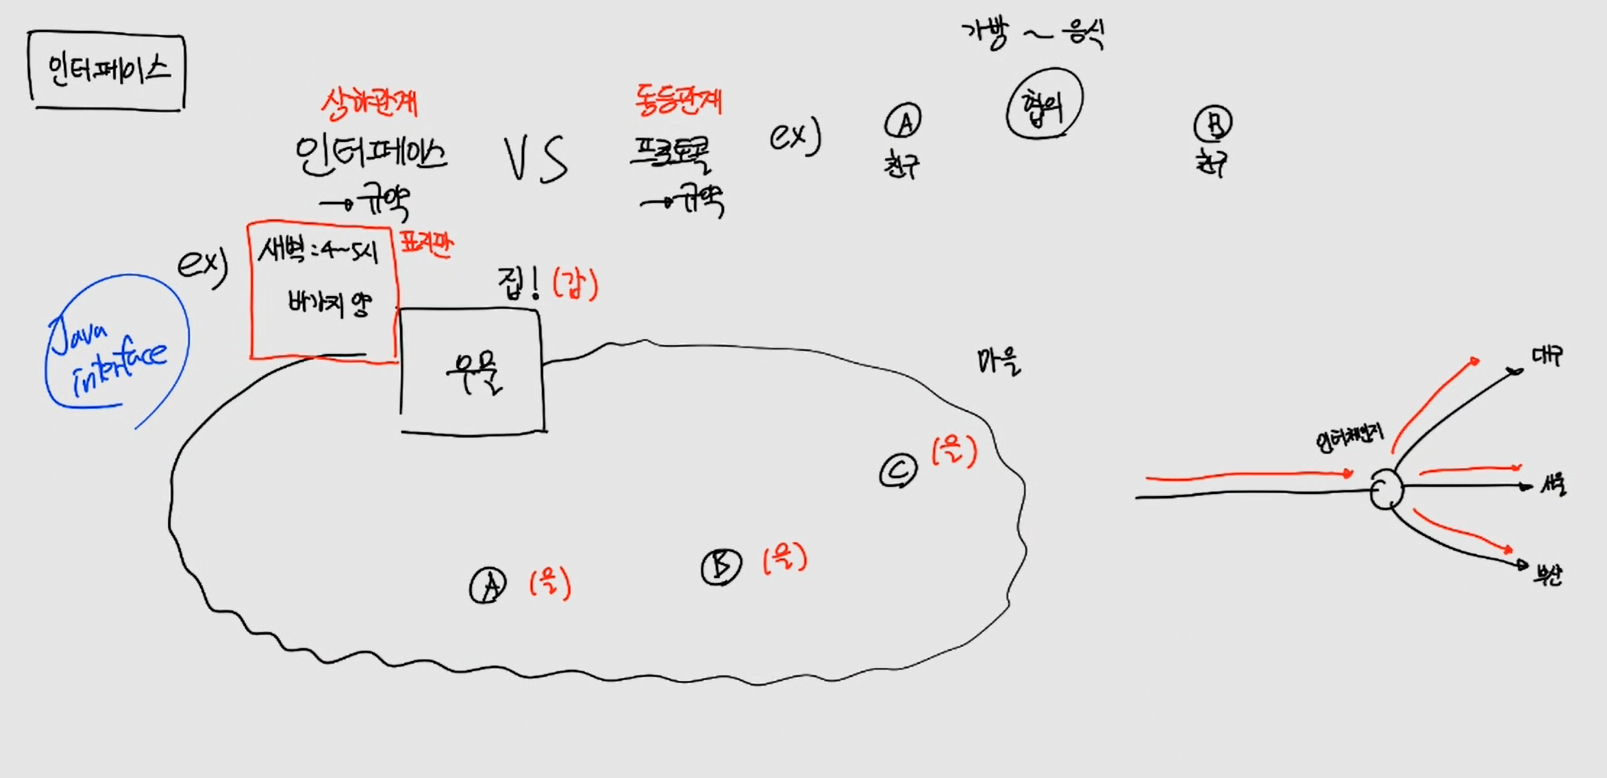 인터페이스
가방 ~ 음식
상하관계
인터페이스
→ 규약
VS
동등관계
프로토콜
→ 규약
ex)
A
친구
협의
B
친구
ex)
새벽 : 4~5시
바가지 양
표지판
집! (갑)
우물
Java
interface
마을
C (을)
B (을)
A (을)
인터체인지
대구
서울
부산